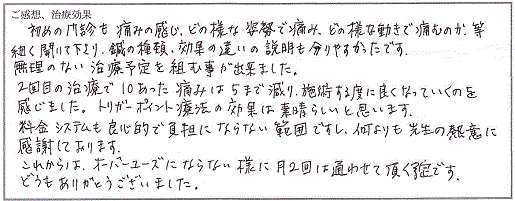 ご感想、治療効果
初めの問診も痛みの感じ、どの様な姿勢で痛み、どの様な動きで痛むのか、等
細く聞いて下さり、鍼の種類、効果の違いの説明も分りやすかったです。
無理のない治療予定を組む事が出来ました。
2回目の治療で10あった痛みは5まで減り、施術する度に良くなっていくのを
感じました。トリガーポイント療法の効果は素晴らしいと思います。
料金システムも良心的で負担にならない範囲ですし、何よりも先生の熱意に
感謝しております。
これからは、オーバーユーズにならない様に月2回は通わせて頂く予定です。
どうもありがとうございました。